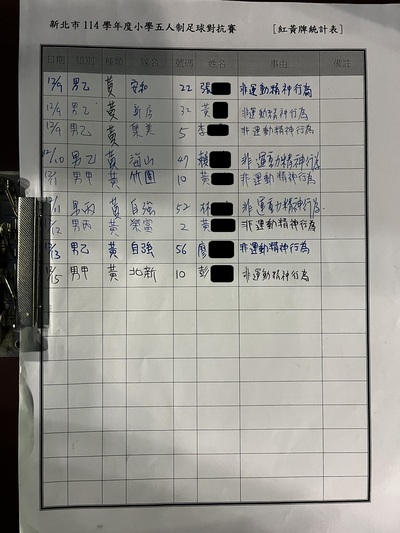 新北市 114 學年度小學五人制足球對抗賽 [紅黃牌統計表]
日期 組別 種類 隊名 號碼 姓名 事由 備註
12/9 男乙 黃 安和 22 張 非運動精神行為
12/9 男乙 黃 新店 32 黃 非運動精神行為
12/9 男乙 黃 集美 5 李 非運動精神行為
12/10 男乙 黃 海山 47 賴 非運動精神行為
男甲 黃 竹圍 10 黃 非運動精神行為
12/11 男丙 黃 自強 52 林 非運動精神行為.
12/12 男丙 黃 榮富 2 黃 非運動精神行為
12/13 男乙 黃 自強 56 廖 非運動精神行為
12/15 男甲 黃 北新 10 彭 非運動精神行為